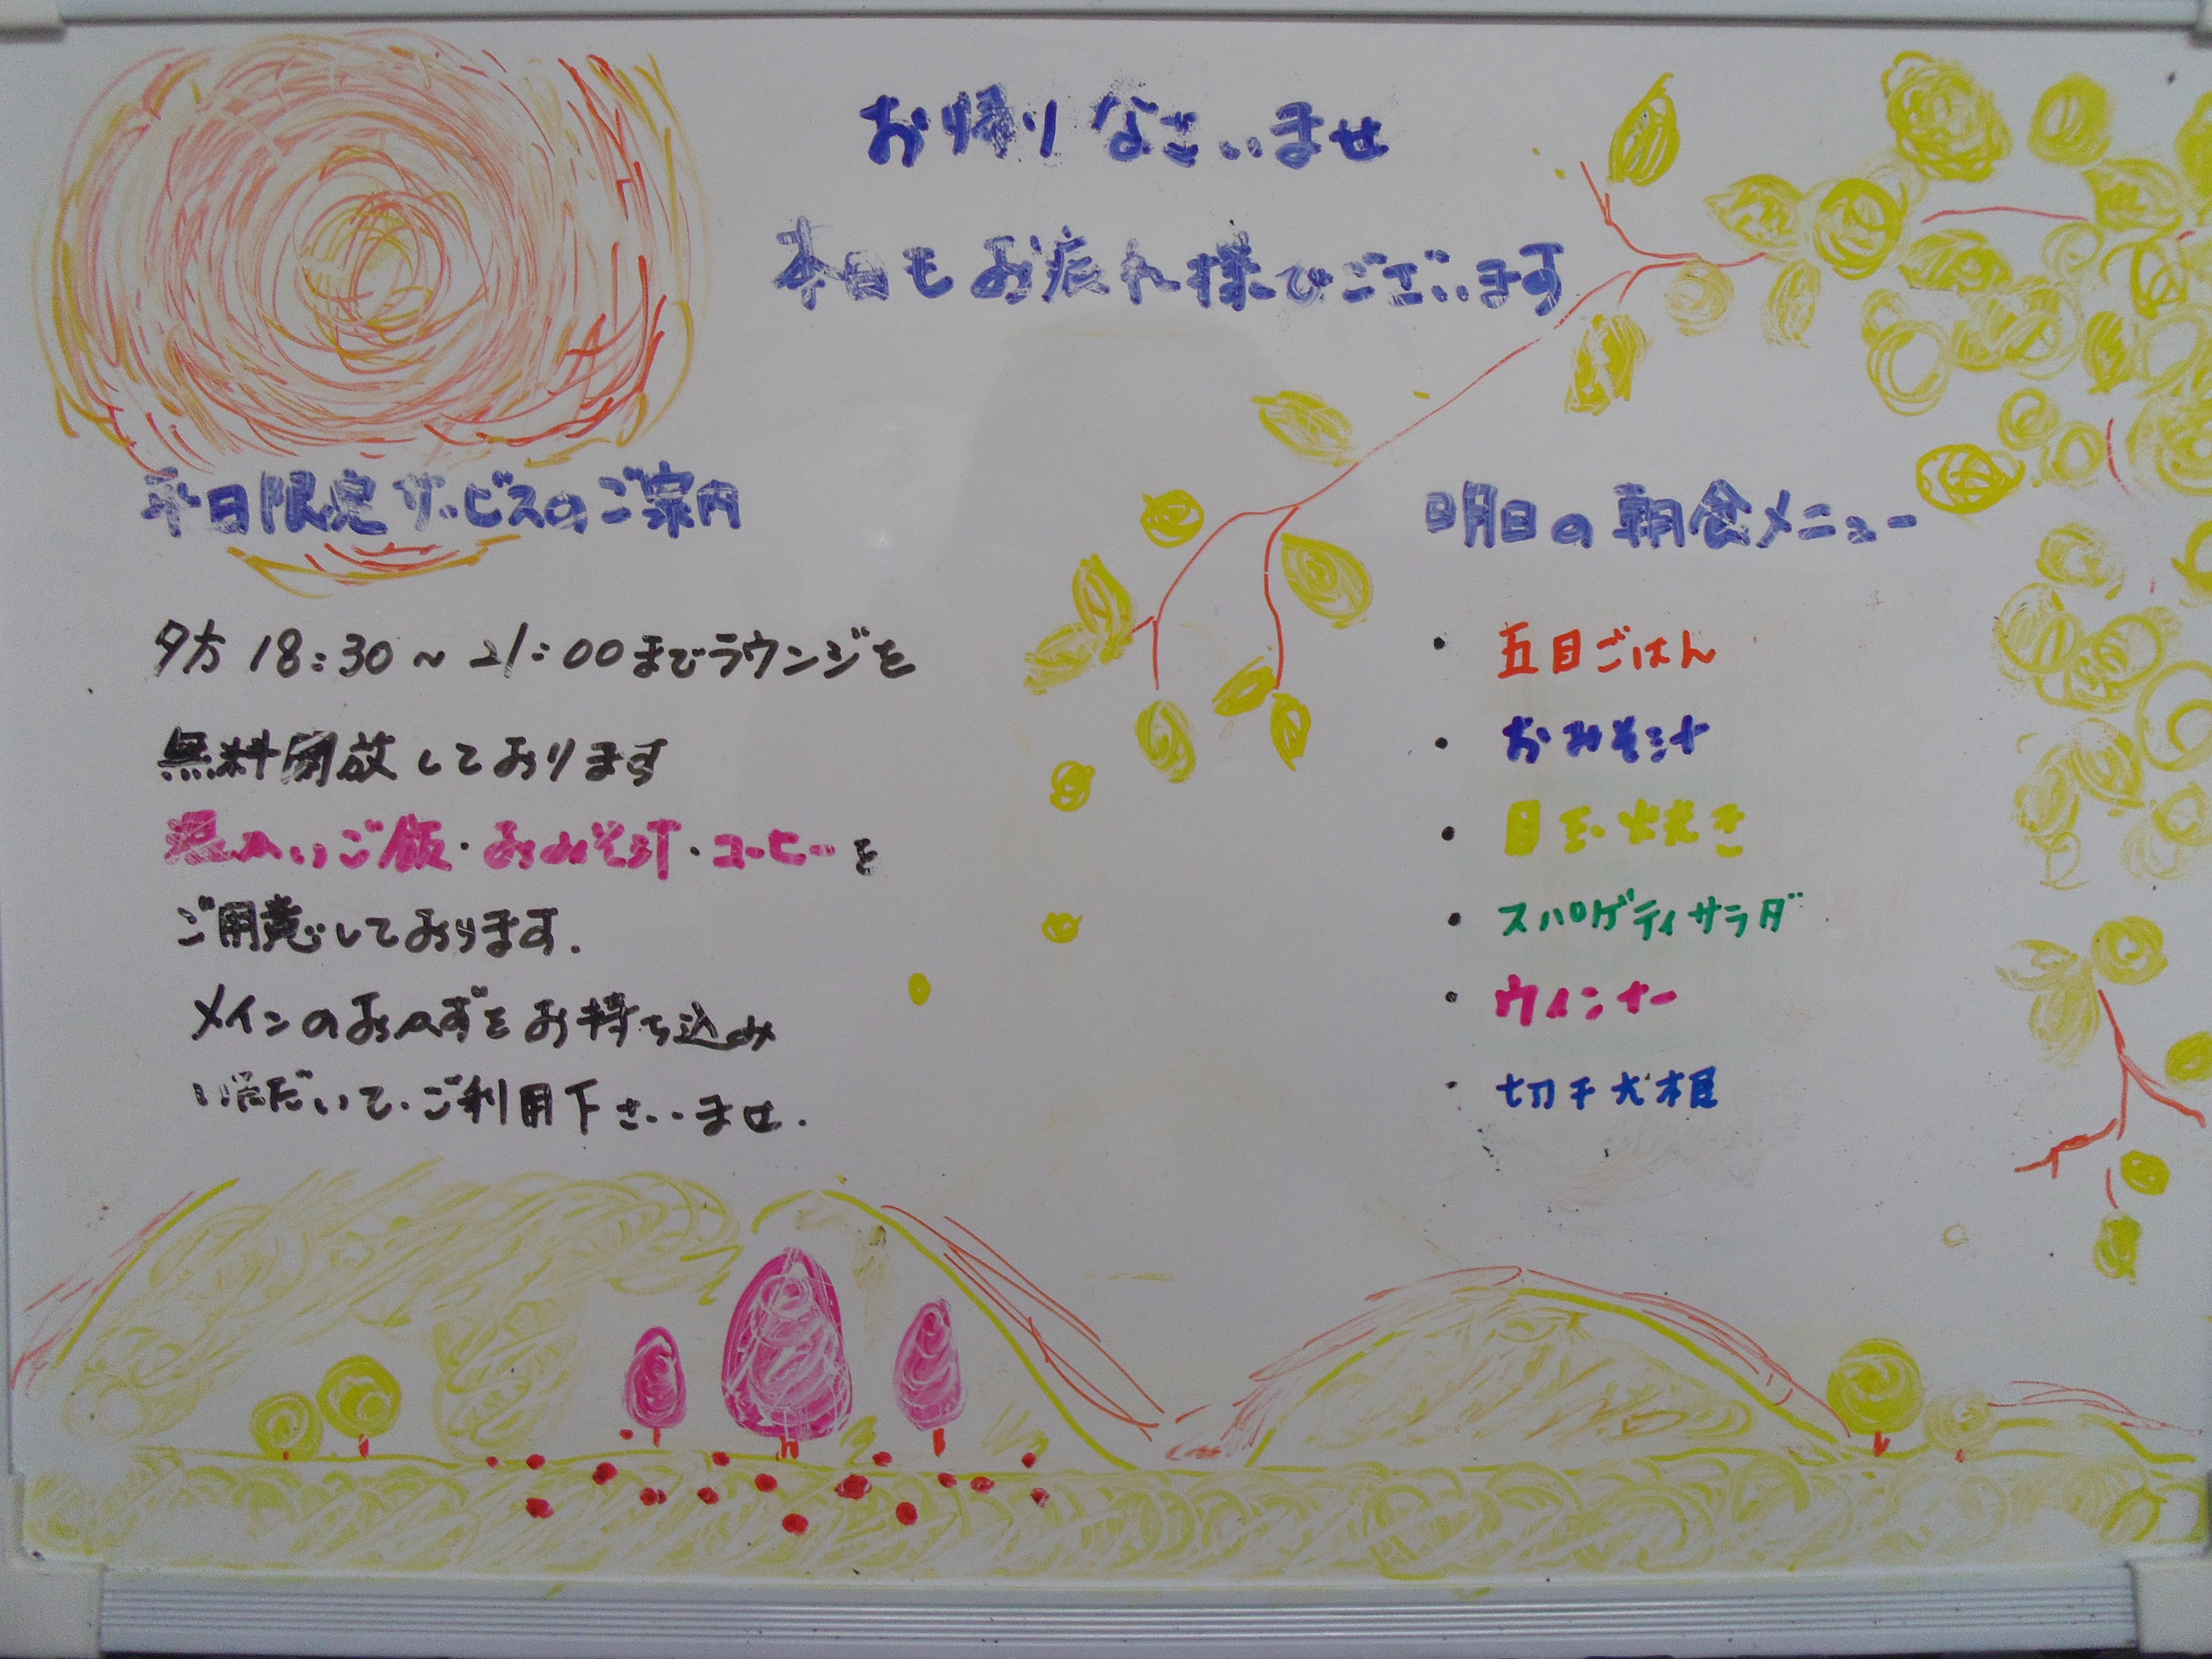 お帰りなさいませ
本日もお疲れ様でございます
平日限定サービスのご案内
夕方 18:30~21:00までラウンジを
無料開放しております
温かいご飯・おみそ汁・コーヒーを
ご用意しております.
メインのおかずをお持ち込み
いただいて、ご利用下さいませ.
明日の朝食メニュー
・ 五目ごはん
・ おみそ汁
・ 目玉焼き
・ スパゲティサラダ
・ ウィンナー
・ 切干大根